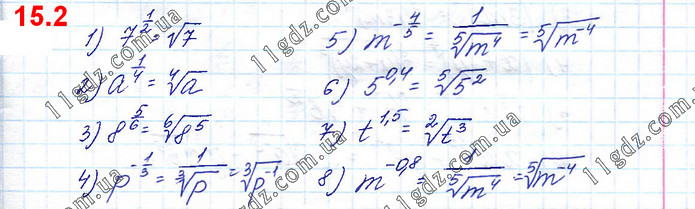 15.2
1) 7^{1/2} = √7
2) a^{1/4} = ⁴√a
3) 8^{5/6} = ⁶√(8⁵)
4) p^{-1/3} = 1/³√p = ³√(p⁻¹)
5) m^{-4/5} = 1/⁵√(m⁴) = ⁵√(m⁻⁴)
6) 5^{0,4} = ⁵√(5²)
7) t^{1,5} = ²√(t³)
8) m^{-0,8} = 1/⁵√(m⁴) = ⁵√(m⁻⁴)
11gdz.com.ua
11gdz.com.ua
11gdz.com.ua
11gdz.com.ua